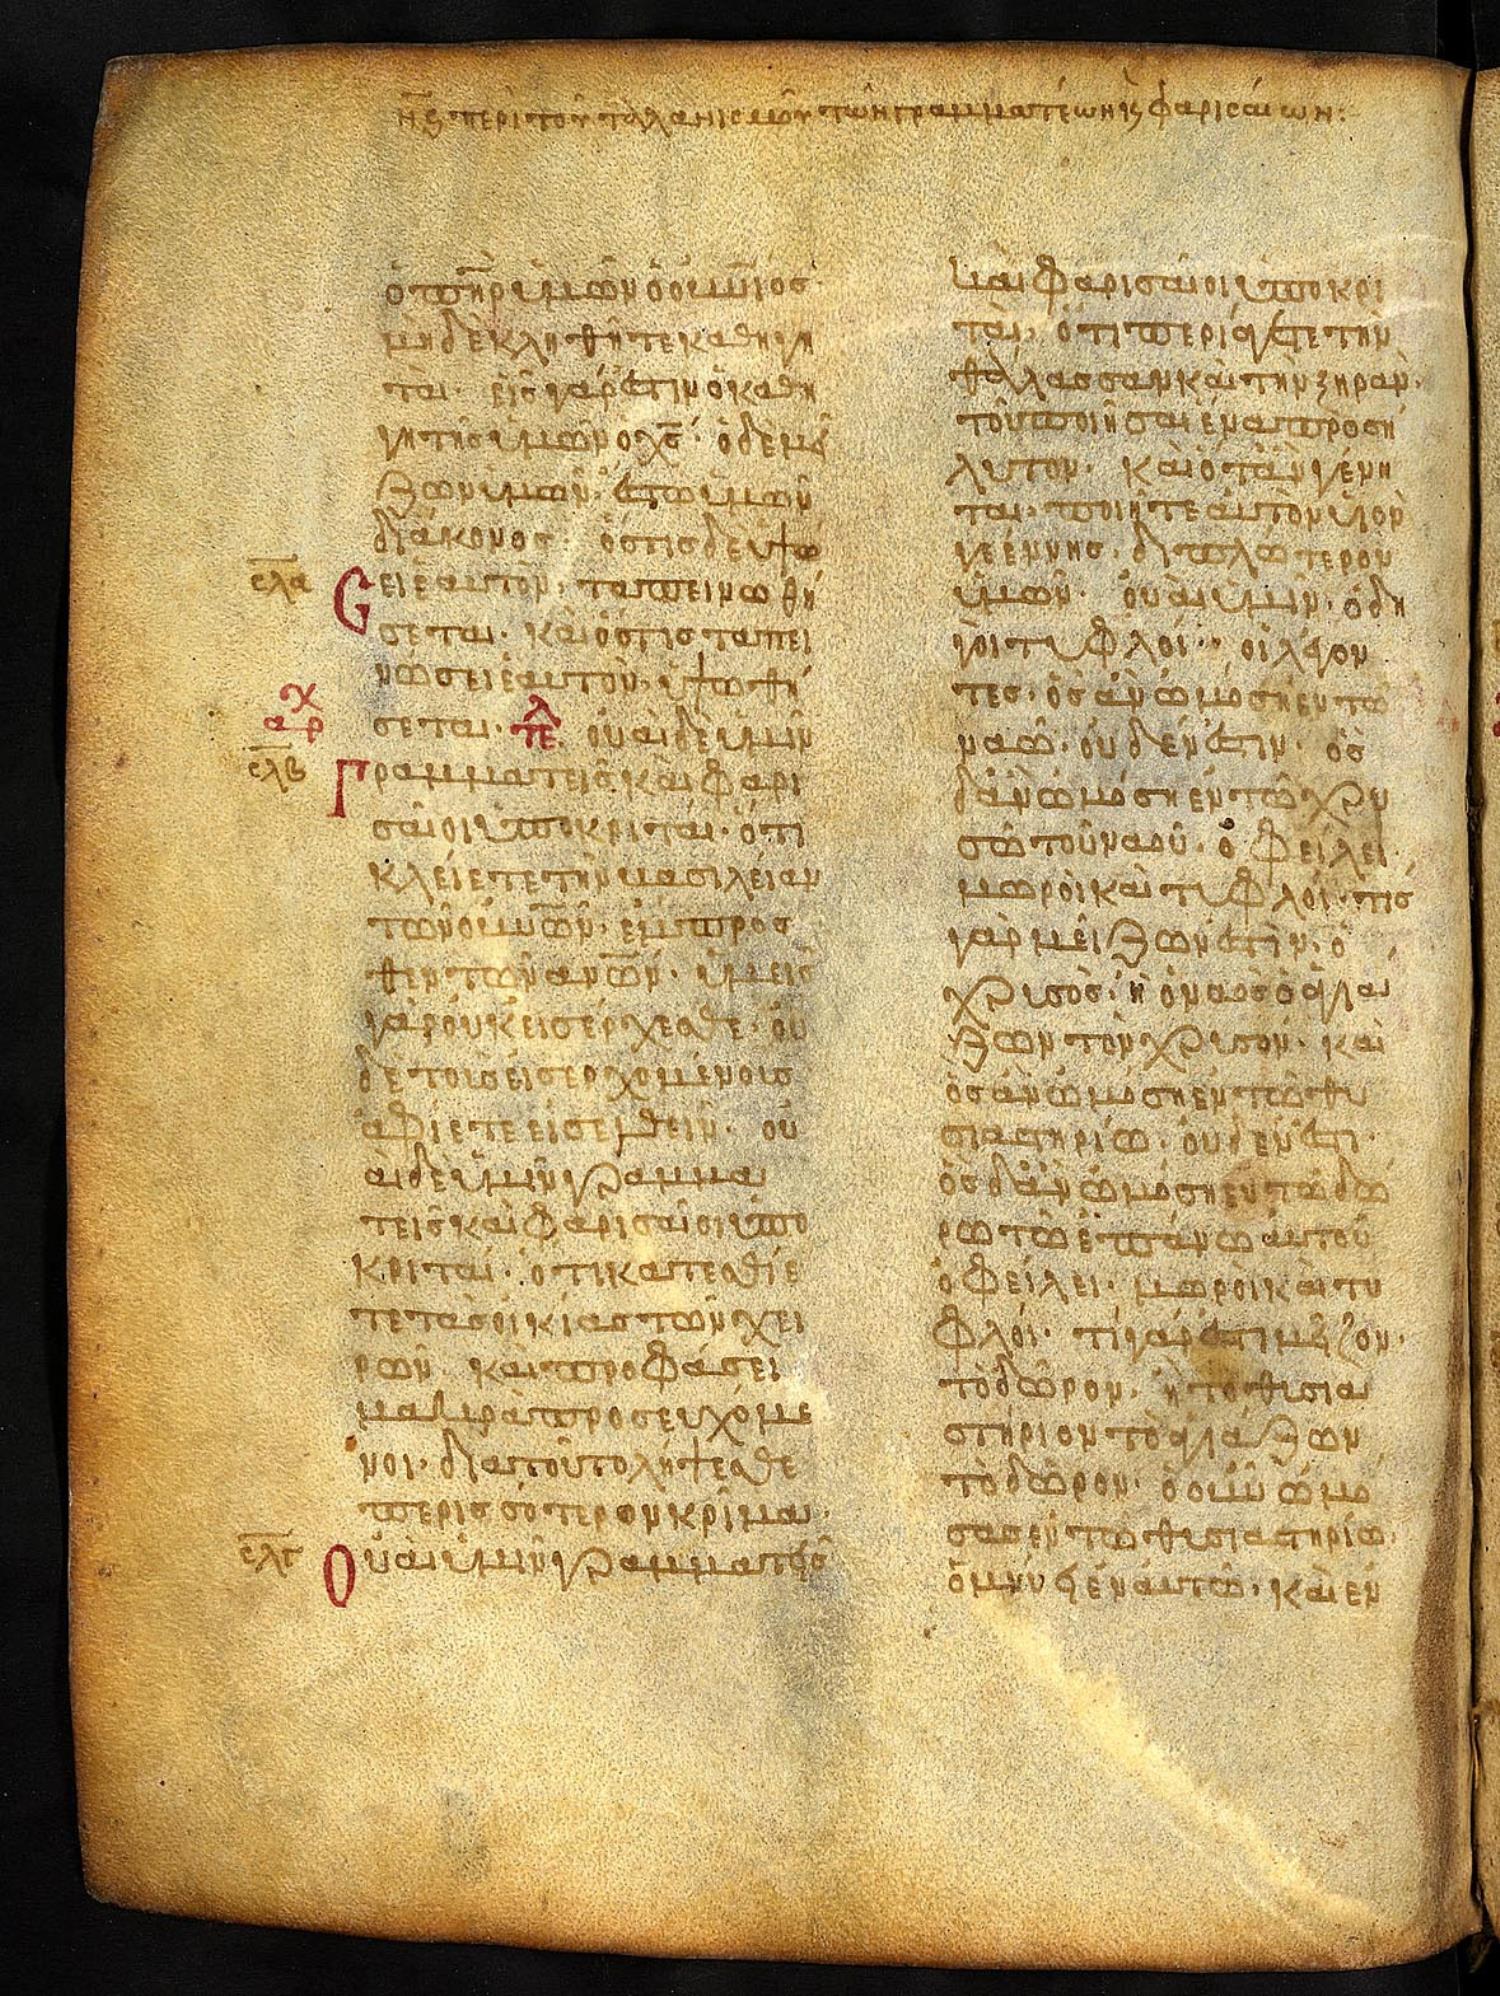 περὶ τοῦ ταλανισμοῦ τῶν γραμματέων κς φαρισαίων:
ὁ πηρ ὑμῶν ὁ οὐνιος·
μηδὲ κληθῆτε καθηγη
ταί· εἷς γάρ ἐστιν ὁ καθη
γητὴς ὑμῶν ὁ χς· ὁ δὲ μεί
ζων ὑμῶν· ἔσται ὑμῶν
διάκονος· ὅστις δὲ ὑψώ
σλα
σει ἑαυτὸν, ταπεινωθή
σεται· καὶ ὅστις ταπει
νώσει ἑαυτὸν, ὑψωθή
χ
αρ
σεται· τελ οὐαὶ δὲ ὑμῖν
σλβ
Γραμματεῖς καὶ φαρι
σαῖοι ὑποκριταί· ὅτι
κλείετε τὴν βασιλείαν
τῶν οὐνῶν· ἔμπροσ
θεν τῶν ανῶν· ὑμεῖς
γὰρ οὐκ εἰσέρχεσθε· οὐ
δὲ τοὺς εἰσερχομένους
ἀφίετε εἰσελθεῖν· οὐ
αὶ δὲ ὑμῖν γραμμα
τεῖς καὶ φαρισαῖοι ὑπο
κριταί· ὅτι κατεσθίε
τε τὰς οἰκίας τῶν χει
ρῶν· καὶ προφάσει
μακρὰ προσευχόμε
νοι· διατοῦτο λήψεσθε
περισσότερον κρίμα·
σλγ
Οὐαὶ ὑμῖν γραμματεῖς
καὶ φαρισαῖοι ὑποκρι
ταί· ὅτι περιάγετε τὴν
θάλασσαν καὶ τὴν ξηρὰν·
τοῦ ποιῆσαι ἕνα προσή
λυτον· καὶ ὅταν γένη
ται· ποιῆτε αὐτὸν υἱὸν
γεέννης· διπλότερον
ὑμῶν· οὐαὶ ὑμῖν· ὁδη
γοὶ τυφλοί· οἱ λέγον
τες· ὃς ἂν ὀμόση ἐν τῶ
ναῶ· οὐδέν ἐστιν· ὃς
δ' ἂν ὀμόση ἐν τῶ χρυ
σῶ τοῦ ναοῦ· ὀφείλει·
μωροὶ καὶ τυφλοί· τίς
γὰρ μείζων ἐστίν· ὁ
χρυσὸς· ἢ ὁ ναὸς ὁ ἁγιά
ζων τὸν χρυσόν· καὶ
ὃς ἂν ὀμόση ἐν τῶ θυ
σιαστηρίω· οὐδέν ἐστι·
ὃς δ' ἂν ὀμόση ἐν τῶ δώ
ρω τῶ ἐπάνω αὐτοῦ
ὀφείλει· μωροὶ καὶ τυ
φλοί· τί γάρ ἐστι μεῖζον·
τὸ δῶρον· ἢ τὸ θυσια
στήριον τὸ ἁγιάζων
τὸ δῶρον· ὁ οὖν ὀμό
σας ἐν τῶ θυσιαστηρίω·
ὀμνύει ἐν αὐτῶ· καὶ ἐν